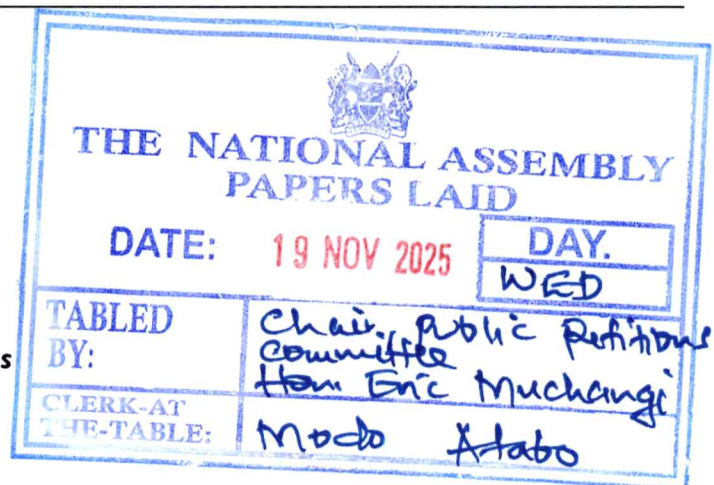 THE NATIONAL ASSEMBLY
PAPERS LAID
DATE: 19 NOV 2025
DAY.
WED
TABLED
BY:
Chair, Public Petitions
Committee
Hon. Eric Muchangi
CLERK-AT
THE-TABLE:
Modo Atabo
s